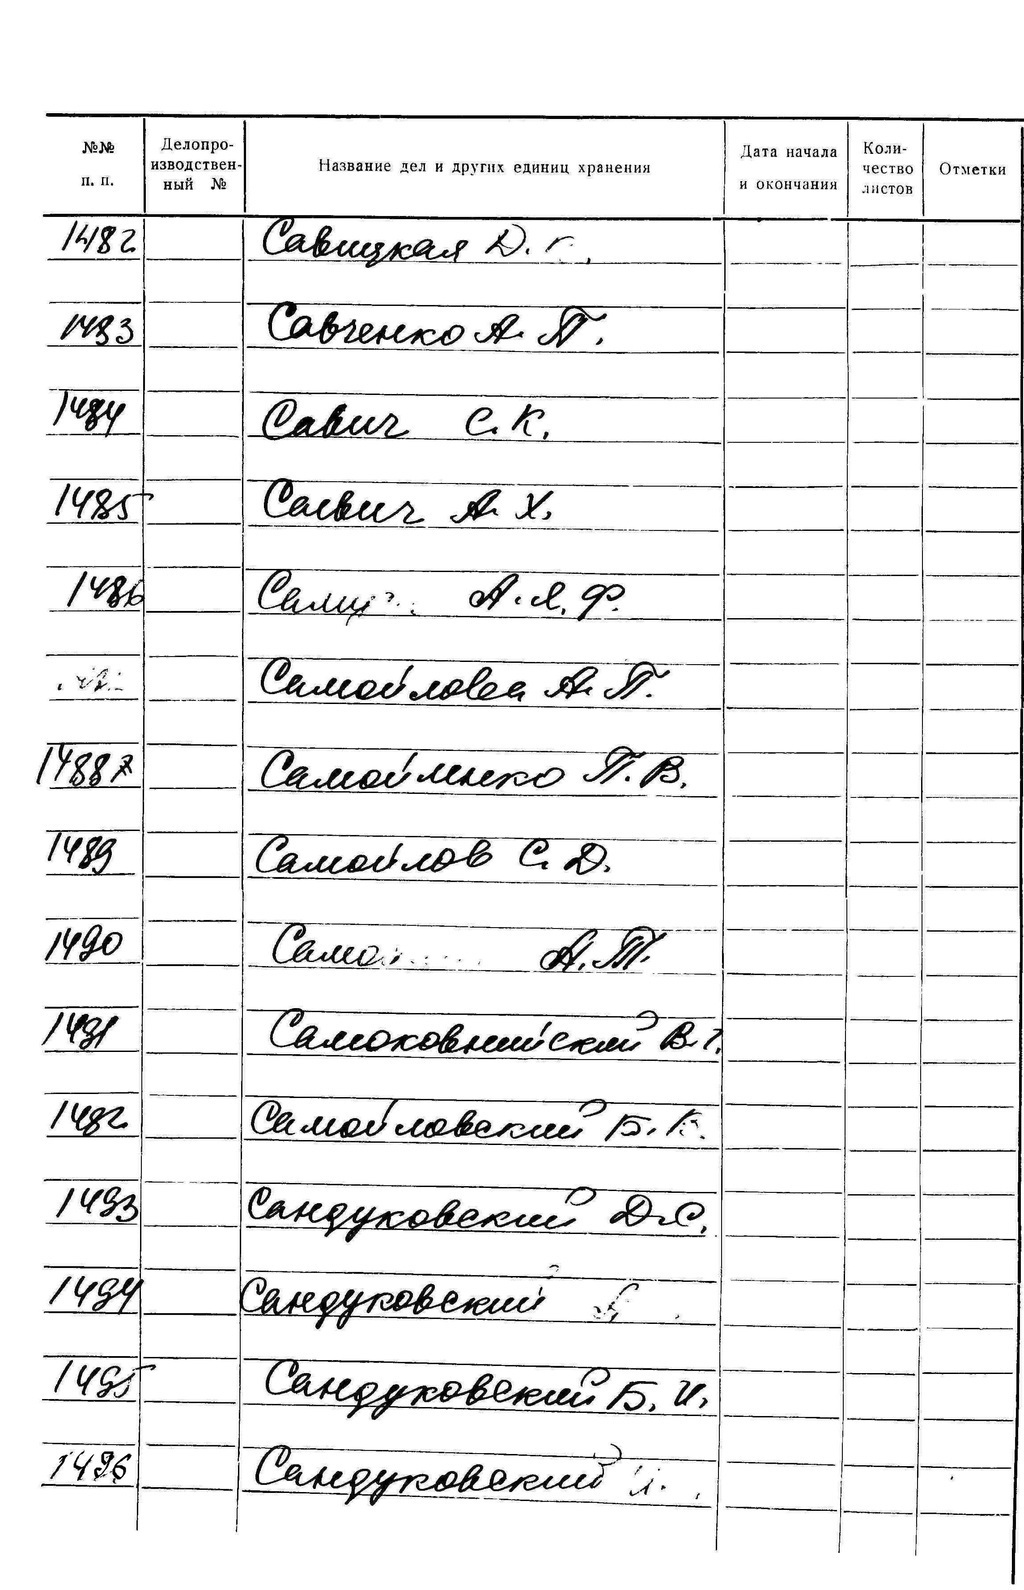 №№ п. п.
Делопро-
изводствен-
ный №
Название дел и других единиц хранения
Дата начала
и окончания
Коли-
чество
листов
Отметки
1482 Савицкая Д.
1483 Савченко А. П.
1484 Савич С. К.
1485 Саевич А. Х.
1486 А. Я. Ф.
Самойлова А. П.
1488 Самойленко П. В.
1489 Самойлов С. Д.
1490 А. Т.
1491 В. Г.
1492 Самойловский Б. К.
1493 Сандуковский Д. С.
1494 Сандуковский
1495 Сандуковский Б. И.
1496 Сандуковский